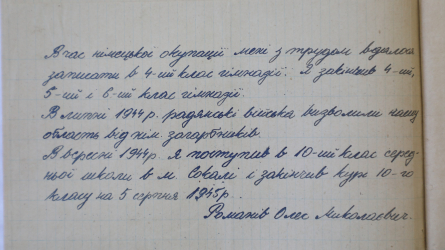 В час німецької окупації мені з трудом вдалося
записати в 4-ий клас гімназії. Я закінчив 4-ий,
5-ий і 6-ий клас гімназії.
В липні 1944р. радянські війська визволили нашу
область від нім. загарбників.
В вересні 1944р. я поступив в 10-ий клас серед-
ньої школи в м. Сокалі і закінчив курс 10-го
класу на 5 серпня 1945р.
Романів Олег Миколаєвич.